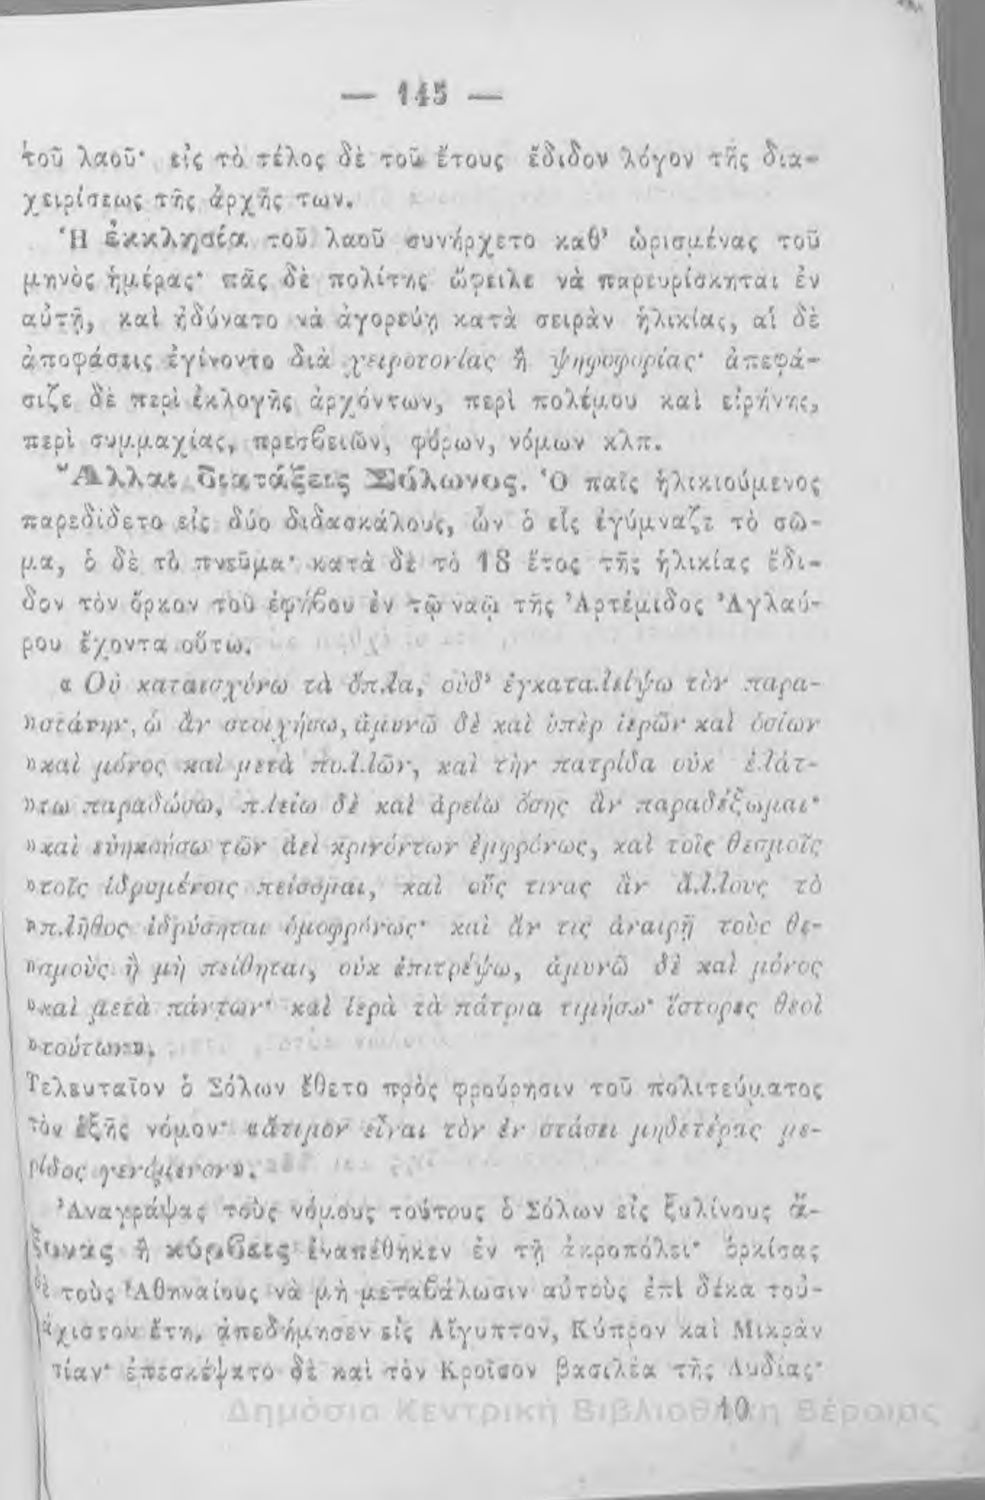 — 145 —
τοῦ λαοῦ· εἰς τὸ τέλος δὲ τοῦ ἔτους ἔδιδον λόγον τῆς δια-
χειρίσεως τῆς ἀρχῆς των.
Ἡ ἐκκλησία τοῦ λαοῦ συνήρχετο καθ' ὡρισμένας τοῦ
μηνὸς ἡμέρας· πᾶς δὲ πολίτης ὤφειλε νὰ παρευρίσκηται ἐν
αὐτῇ, καὶ ἠδύνατο νὰ ἀγορεύῃ κατὰ σειρὰν ἡλικίας, αἱ δὲ
ἀποφάσεις ἐγίνοντο διὰ χειροτονίας ἢ ψηφοφορίας· ἀπεφά-
σιζε δὲ περὶ ἐκλογῆς ἀρχόντων, περὶ πολέμου καὶ εἰρήνης,
περὶ συμμαχίας, πρεσβειῶν, φόρων, νόμων κλπ.
Ἄλλαι διατάξεις Σόλωνος. Ὁ παῖς ἡλικιούμενος
παρεδίδετο εἰς δύο διδασκάλους, ὧν ὁ εἷς ἐγύμναζε τὸ σῶ-
μα, ὁ δὲ τὸ πνεῦμα· κατὰ δὲ τὸ 18 ἔτος τῆς ἡλικίας ἔδι-
δον τὸν ὅρκον τοῦ ἐφήβου ἐν τῷ ναῷ τῆς Ἀρτέμιδος Ἀγλαύ-
ρου ἔχοντα οὕτω.
« Οὐ καταισχύνω τὰ ὅπλα, οὐδ' ἐγκαταλείψω τὸν παρα-
»στάτην, ᾧ ἂν στοιχήσω, ἀμυνῶ δὲ καὶ ὑπὲρ ἱερῶν καὶ ὁσίων
»καὶ μόνος καὶ μετὰ πολλῶν, καὶ τὴν πατρίδα οὐκ ἐλάτ-
»τω παραδώσω, πλείω δὲ καὶ ἀρείω ὅσης ἂν παραδέξωμαι·
»καὶ εὐηκοήσω τῶν ἀεὶ κρινόντων ἐμφρόνως, καὶ τοῖς θεσμοῖς
»τοῖς ἱδρυμένοις πείσομαι, καὶ οὕς τινας ἂν ἄλλους τὸ
»πλῆθος ἱδρύσηται ὁμοφρόνως· καὶ ἄν τις ἀναιρῇ τοὺς θε-
»σμοὺς ἢ μὴ πείθηται, οὐκ ἐπιτρέψω, ἀμυνῶ δὲ καὶ μόνος
»καὶ μετὰ πάντων· καὶ ἱερὰ τὰ πάτρια τιμήσω· ἵστορες θεοὶ
»τούτων».
Τελευταῖον ὁ Σόλων ἔθετο πρὸς φρούρησιν τοῦ πολιτεύματος
τὸν ἑξῆς νόμον· «ἄτιμον εἶναι τὸν ἐν στάσει μηδετέρας με-
ρίδος γενόμενον».
Ἀναγράψας τοὺς νόμους τούτους ὁ Σόλων εἰς ξυλίνους ἄ-
ξονας ἢ κύρβεις ἐναπέθηκεν ἐν τῇ ἀκροπόλει· ὁρκίσας
δὲ τοὺς Ἀθηναίους νὰ μὴ μεταβάλωσιν αὐτοὺς ἐπὶ δέκα τοὐ-
άχιστον ἔτη, ἀπεδήμησεν εἰς Αἴγυπτον, Κύπρον καὶ Μικρὰν
σίαν· ἐπεσκέψατο δὲ καὶ τὸν Κροῖσον βασιλέα τῆς Λυδίας·
10
Δημόσια Κεντρική Βιβλιοθήκη Βέροιας